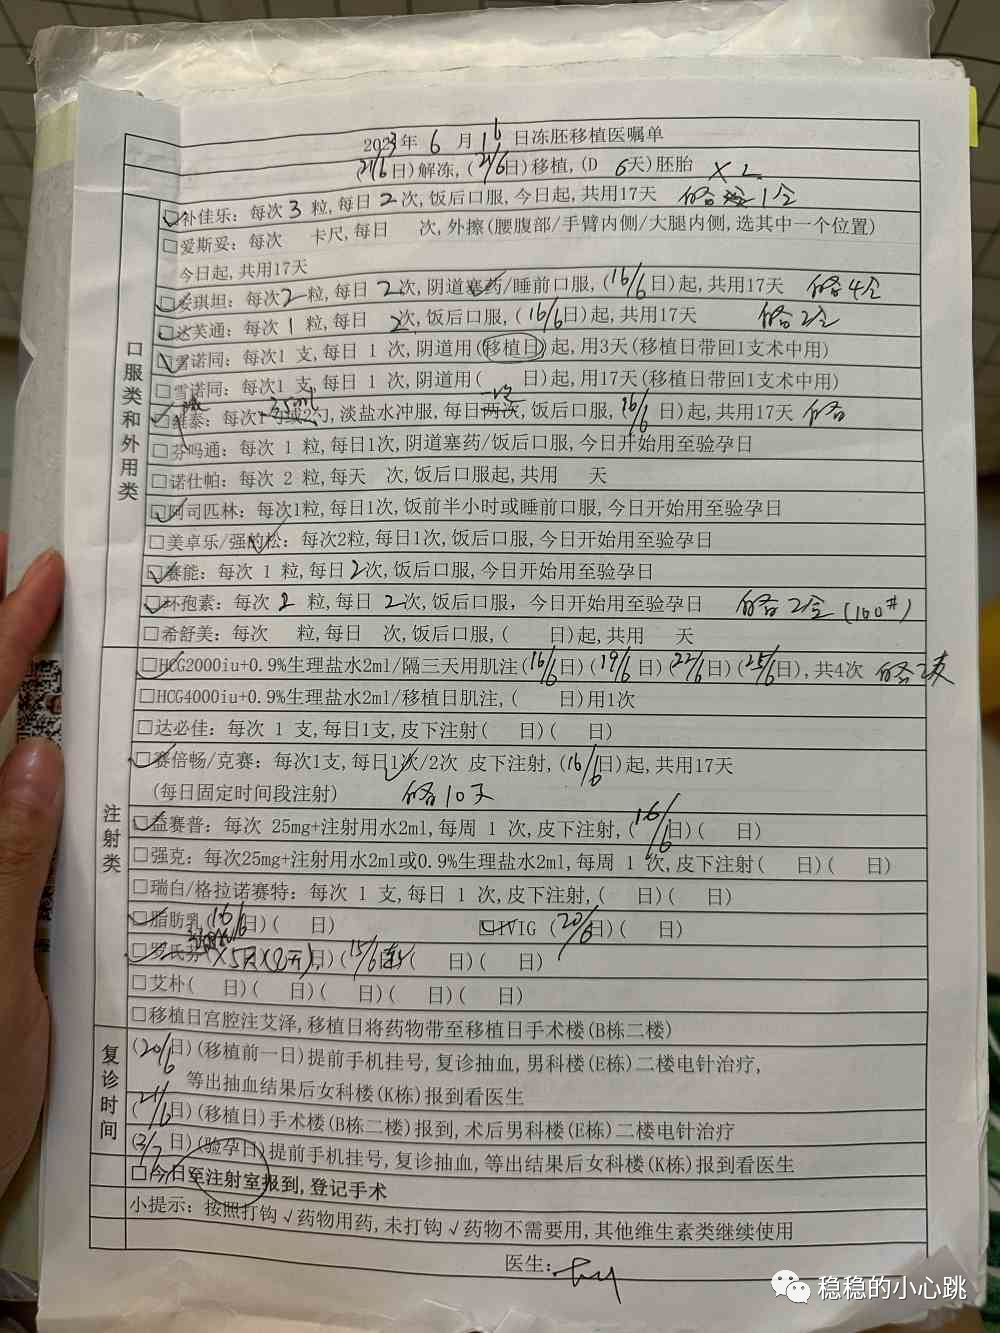 2023年 6 月 16 日冻胚移植医嘱单
(21/6日)解冻,(21/6日)移植,(D 6天)胚胎 ×2
口服类和外用类
☑补佳乐: 每次 3 粒,每日 2 次,饭后口服,今日起,共用17天 1盒
□爱斯妥: 每次 卡尺,每日 次,外擦(腰腹部/手臂内侧/大腿内侧,选其中一个位置)
今日起,共用17天
☑安琪坦: 每次2粒,每日 2次,阴道塞药/睡前口服,(16/6日)起,共用17天 4盒
☑达芙通: 每次 1 粒,每日 2次,饭后口服,(16/6日)起,共用17天 2盒
☑雪诺同: 每次1 支,每日 1 次,阴道用(移植日)起,用3天(移植日带回1支术中用)
□雪诺同: 每次1 支,每日 1 次,阴道用( 日)起,用17天(移植日带回1支术中用)
☑维泰: 每次1勺或2勺,淡盐水冲服,每日两次,饭后口服,(16/6 日)起,共用17天
□芬吗通: 每次 1 粒,每日1次,阴道塞药/饭后口服,今日开始用至验孕日
□诺仕帕: 每次 2 粒,每天 次,饭后口服起,共用 天
☑阿司匹林: 每次1粒,每日1次,饭前半小时或睡前口服,今日开始用至验孕日
□美卓乐/强的松: 每次2粒,每日1次,饭后口服,今日开始用至验孕日
☑赛能: 每次 1 粒,每日2次,饭后口服,今日开始用至验孕日
☑环孢素: 每次 2 粒,每日 2次,饭后口服, 今日开始用至验孕日 2盒(100#)
□希舒美: 每次 粒,每日 次,饭后口服,( 日)起,共用 天
注射类
☑HCG2000iu+0.9%生理盐水2ml/隔三天用肌注(16/6日)(19/6日)(22/6日)(25/6日),共4次
□HCG4000iu+0.9%生理盐水2ml/移植日肌注,( 日)用1次
□达必佳: 每次 1 支,每日1支,皮下注射( 日)( 日)
☑赛倍畅/克赛: 每次1支,每日1次/2次 皮下注射,(16/6日)起,共用17天
(每日固定时间段注射) 10天
☑益赛普: 每次 25mg+注射用水2ml,每周 1 次,皮下注射,(16/6日)( 日)
□强克: 每次25mg+注射用水2ml或0.9%生理盐水2ml,每周 1 次,皮下注射( 日)( 日)
□瑞白/格拉诺赛特: 每次 1 支,每日 1 次,皮下注射,( 日)( 日)
☑脂肪乳(16/6日)( 日) ☑IVIG (20/6日)( 日)
☑罗氏芬 (15/6日)( 日)( 日)
□艾朴( 日)( 日)( 日)( 日)( 日)
□移植日宫腔注艾泽,移植日将药物带至移植日手术楼(B栋二楼)
复诊时间
(20/6日)(移植前一日)提前手机挂号,复诊抽血,男科楼(E栋)二楼电针治疗,
等出抽血结果后女科楼(K栋)报到看医生
(21/6日)(移植日)手术楼(B栋二楼)报到,术后男科楼(E栋)二楼电针治疗
(3/7日)(验孕日)提前手机挂号,复诊抽血,等出结果后女科楼(K栋)报到看医生
□今日至注射室报到,登记手术
小提示: 按照打钩√药物用药,未打钩√药物不需要用,其他维生素类继续使用
医生:
稳稳的小心跳